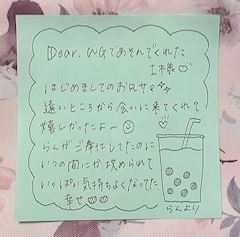 Dear. WGであそんでくれた
I様♡
はじめましてのお兄サマ
遠いところから会いに来てくれて
嬉しかったよ〜☺
らんがご奉仕してたのに
いつの間にか攻められて
いっぱい気持ちよくなってた
幸せ♡♡
らんより